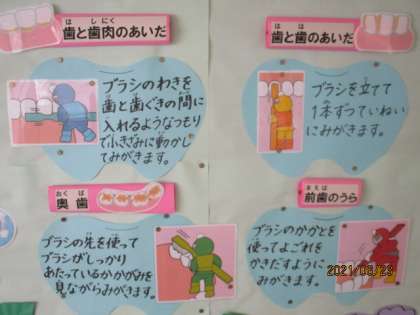 は しにく
歯と歯肉のあいだ
ブラシのわきを
歯と歯ぐきの間に
入れるようなつもり
で小きざみに動かして
みがきます。
は は
歯と歯のあいだ
ブラシを立てて
1本ずつていねい
にみがきます。
おくば
奥歯
ブラシの先を使って
ブラシがしっかり
あたっているかかがみを
見ながらみがきます。
まえば
前歯のうら
ブラシのかかとを
使ってよごれを
かきだすように
みがきます。
2021/08/23